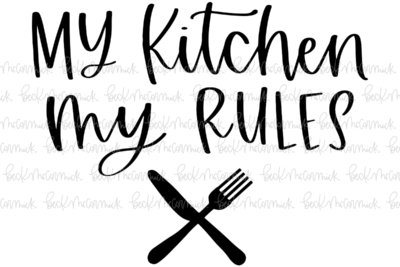 MY Kitchen
my RULES